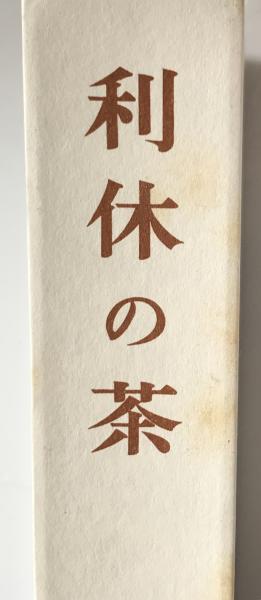 利休の茶